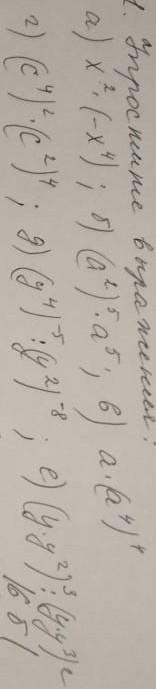 1. Упростите выражения:
а) x²·(-x⁴); б) (a²)⁵·a⁵; в) a·(a⁴)⁴
г) (c⁴)²·(c²)⁴; д) (y⁴)⁻⁵:(y²)⁻⁸; е) (y·y²)³:(y·y³)²
/6 б/